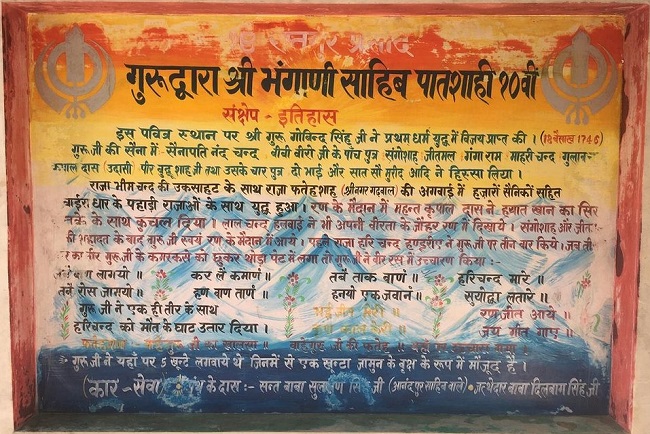 सतगुर प्रसाद
गुरुद्वारा श्री भंगाणी साहिब पातशाही १०वीं
संक्षेप - इतिहास
इस पवित्र स्थान पर श्री गुरु गोबिन्द सिंह जी ने प्रथम धर्म युद्ध में विजय प्राप्त की। (18 बैसाख 1746)
गुरु जी की सेना में सेनापति नंद चन्द बीबी वीरो जी के पांच पुत्र संगोशाह जीतमल गंगा राम माहरी चन्द गुलाब
कृपाल दास (उदासी) पीर बुद्धू शाह जी तथा उसके चार पुत्र दो भाई और सात सौ मुरीद आदि ने हिस्सा लिया।
राजा भीम चन्द की उकसाहट के साथ राजा फतेहशाह (श्रीनगर गढ़वाल) की अगवाई में हजारों सैनिकों सहित
बाईस धार के पहाड़ी राजाओं के साथ युद्ध हुआ। रण के मैदान में महन्त कृपाल दास ने हयात खान का सिर
के साथ कुचल दिया। लाल चन्द हलवाई ने भी अपनी वीरता के जौहर रण में दिखाये। संगोशाह और जीत
की शहादत के बाद गुरु जी स्वयं रण के मैदान में आये। पहले राजा हरि चन्द हण्डूरीए ने गुरु जी पर तीन वार किये। जब ती
का तीर गुरु जी के कमरकस्से को छुकर थोड़ा पेट में लगा तो गुरु जी ने वीर रस में उच्चारण किया :
बाण लागयो ॥ कर लै कमाणं ॥ तबै ताक बाणं ॥ हरिचन्द मारे ॥
तबै रोस जागयो ॥ हण बाण ताणं ॥ हनयो एक जवानं ॥ सुयोद्धा लतारे ॥
गुरु जी ने एक ही तीर के साथ भई जीत मेरी ॥ रण जीत आये ॥
हरिचन्द को मौत के घाट उतार दिया। जय गीत गाए ॥
गुरु जी ने यहाँ पर 5 खून्टे लगवाये थे जिनमें से एक खून्टा जामुन के वृक्ष के रूप में मौजूद है।
(कार - सेवा) पंथ के दास :- सन्त बाबा सिंह जी (आनंदपुर साहिब वाले) जत्थेदार बाबा दिलबाग सिंह जी